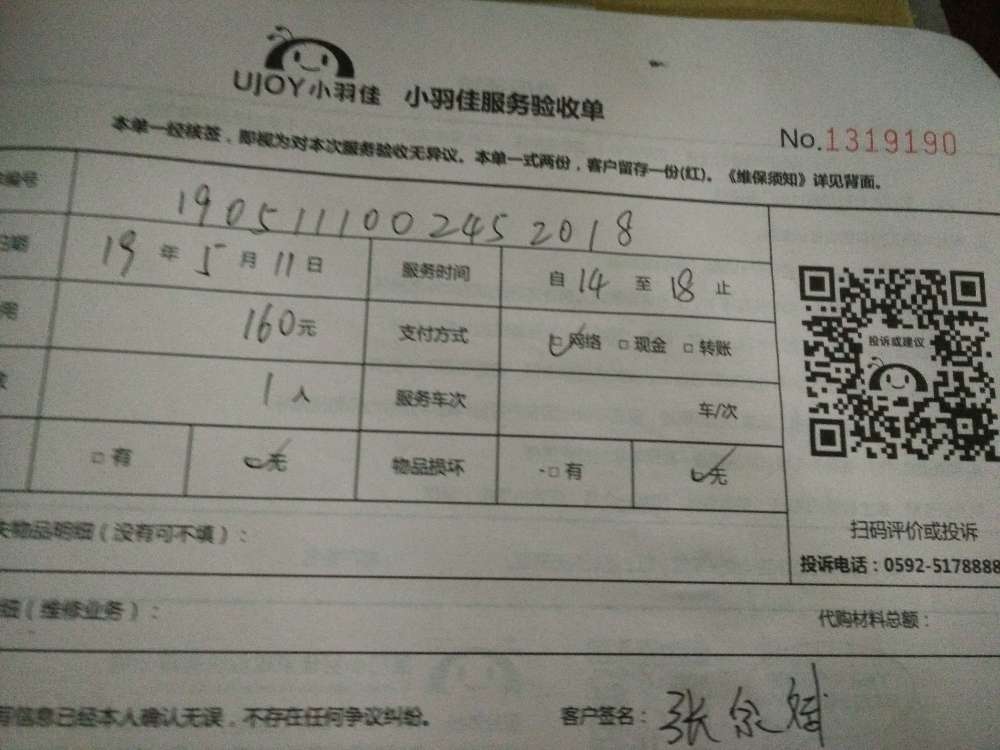 UJOY小羽佳 小羽佳服务验收单
No.1319190
本单一经核签，即视为对本次服务验收无异议。本单一式两份，客户留存一份(红)。《维保须知》详见背面。
编号 1905111002452018
日期 19年5月11日 服务时间 自14至18止
用 160元 支付方式 □网络 □现金 □转账
投诉或建议
数 1人 服务车次 车/次
□有 □无 物品损坏 □有 □无
失物品明细（没有可不填）：
扫码评价或投诉
投诉电话：0592-5178888
细（维修业务）： 代购材料总额：
写信息已经本人确认无误，不存在任何争议纠纷。 客户签名：张